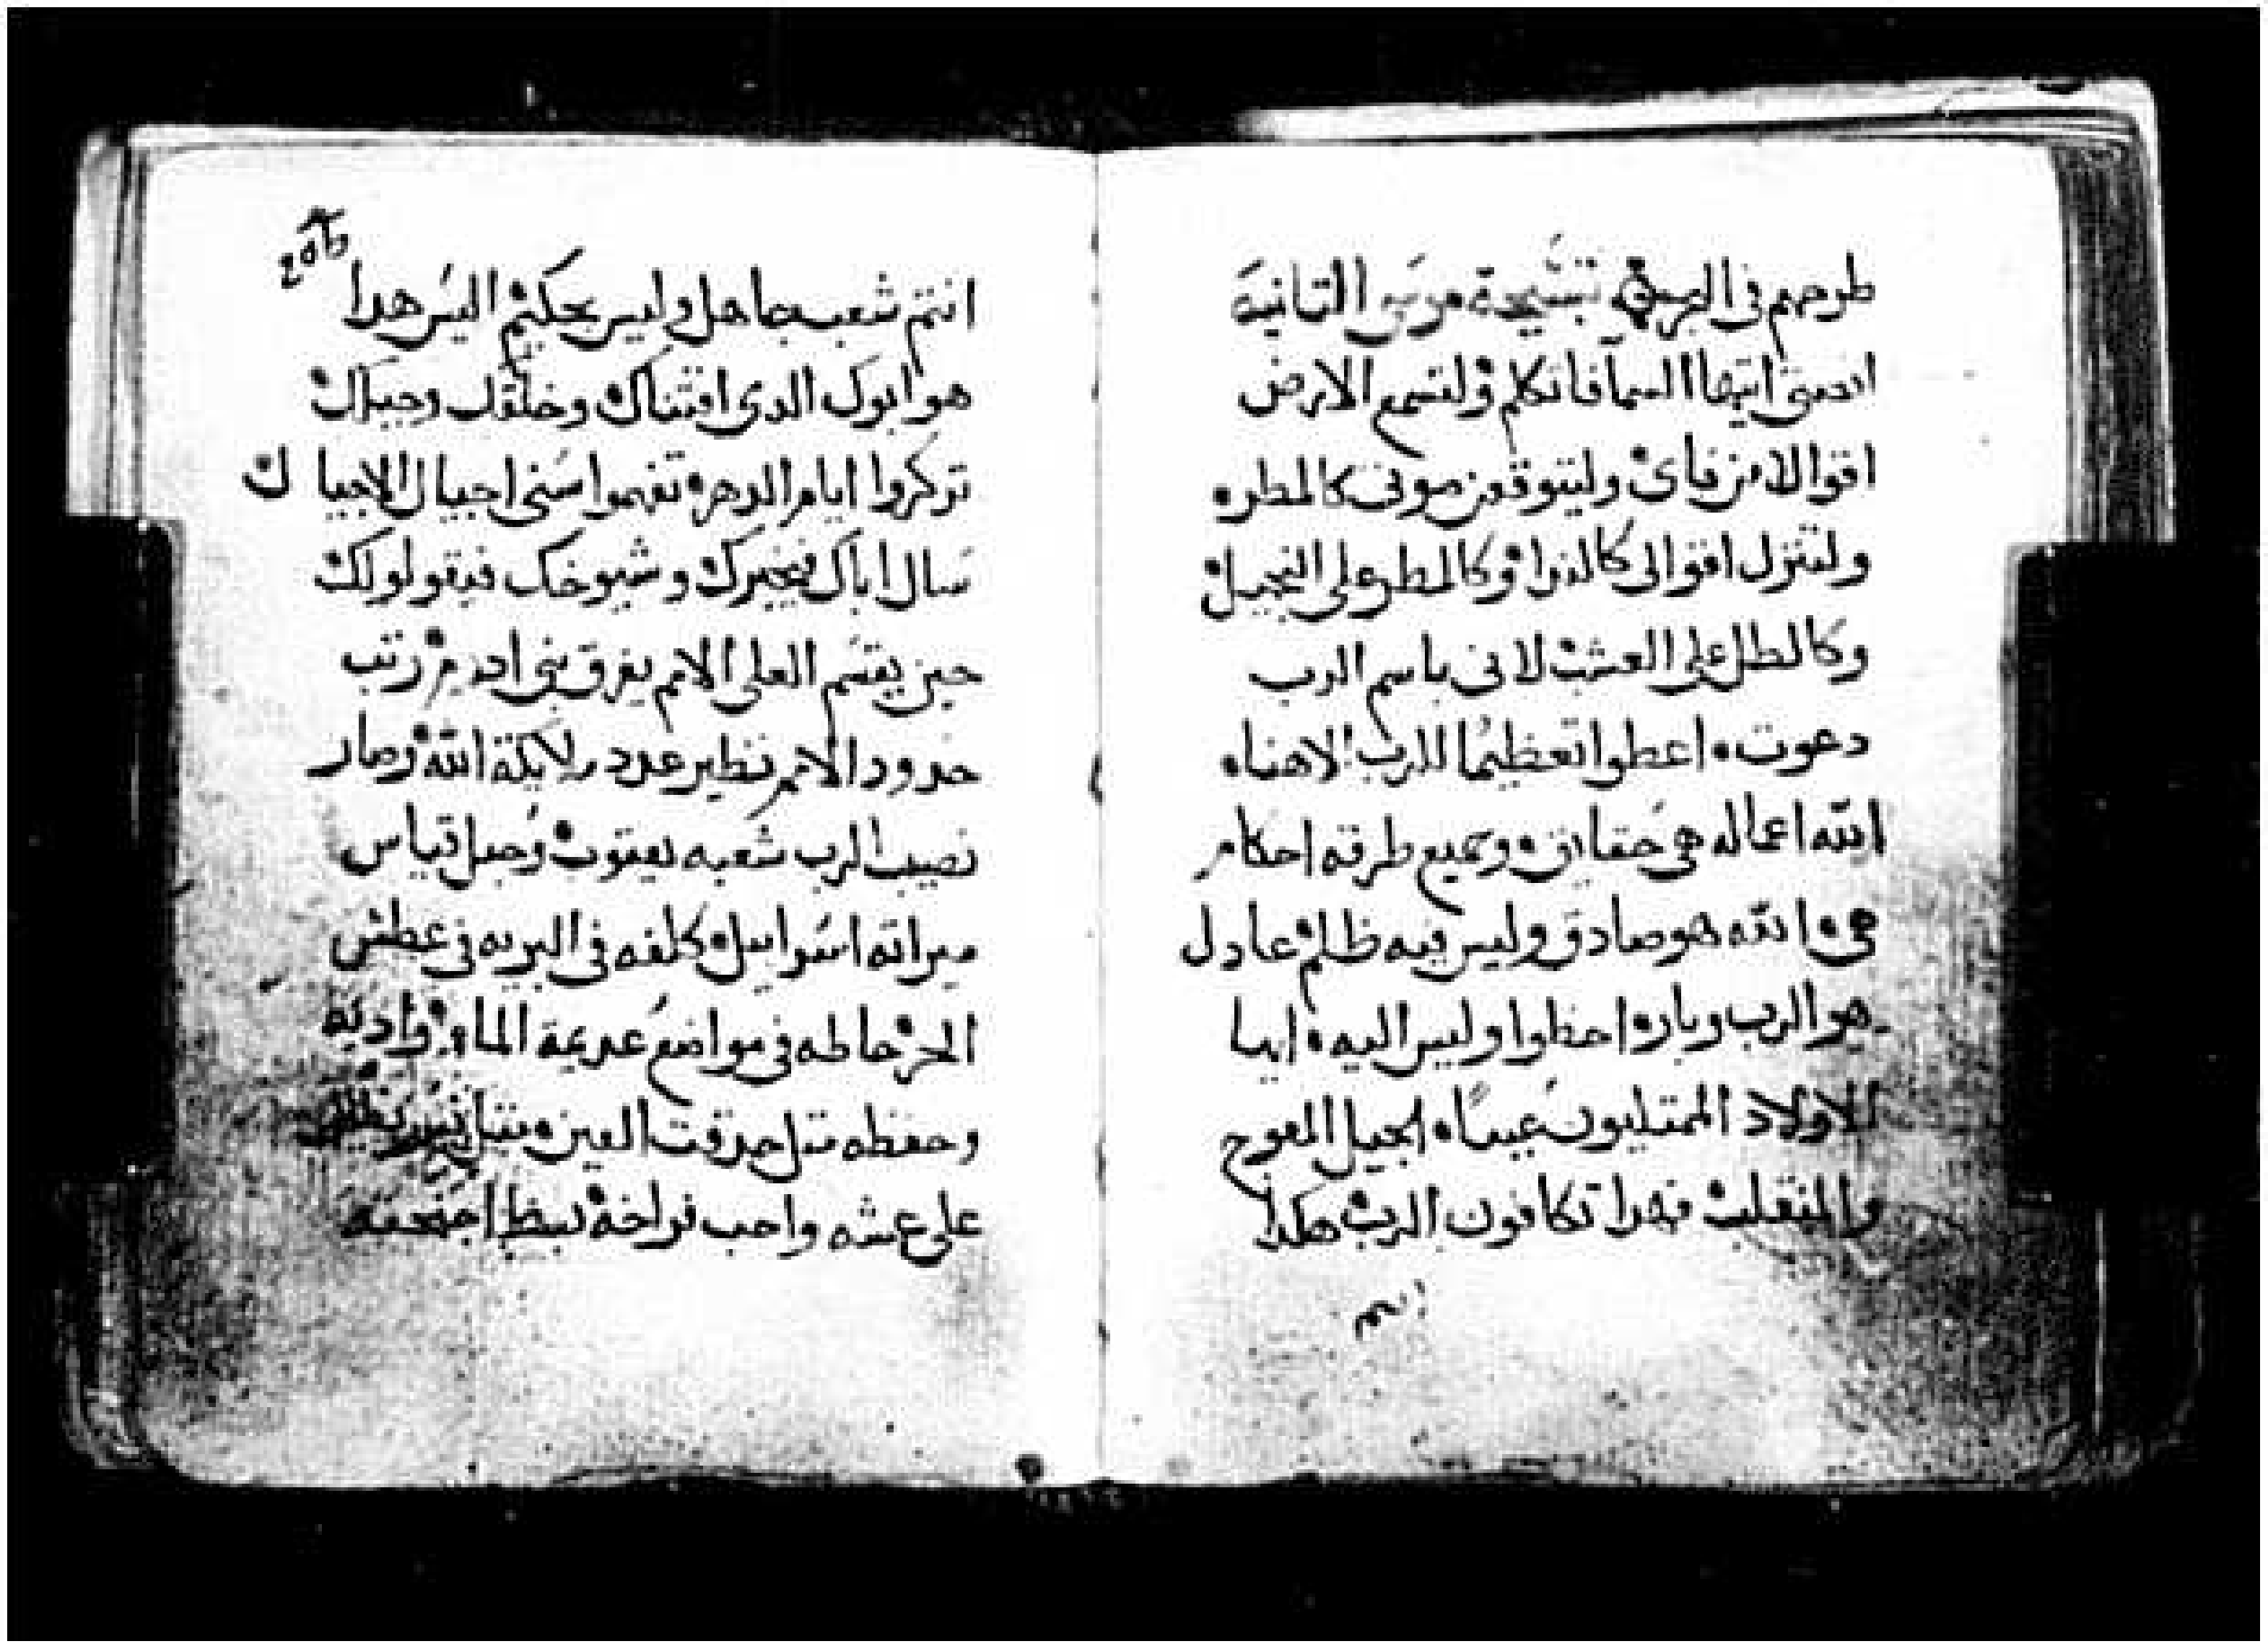 طرحهم في البحر تسبحة موسى التانية
انصتي ايتها السمآ فاتكلم ولتسمع الارض
اقوالا من فاى وليتوقعن صوتى كالمطر
ولتنزل اقوالى كالندا وكالمطر على النجيل
وكالطل على العشب لانى باسم الرب
دعوت اعطوا تعظيمًا للرب الاهنا
الله اعماله هى حقانى وجميع طرقه احكام
هى الله هو صادق وليس فيه ظلم عادل
هو الرب وبار اخطوا وليس اليه ايها
الاولاد الممتليون عيبًا الجيل المعوج
والمتقلب فهدا تكافون الرب هكدا
انتم
206
انتم شعب جاهل وليس بحكيم اليس هدا
هو ابوك الدى اقتناك وخلقك وجبلك
تدكروا ايام الدهر تفهموا سنى اجيال الاجيال
سال اباك فيخبرك وشيوخك فيقولولك
حين يقسم العلى الامم يفرق بنى ادم رتب
حدود الامم نظير عدد ملايكة الله وصار
نصيب الرب شعبه يعقوب وحبل قياس
ميراته اسراييل كلفه في البريه في عطش
الحر حاطه في مواضع عديمة الما وادبه
وحفظه متل حدقت العين ومتل نسر يظلل
على عشه واحب فراخه بسط اجنحته